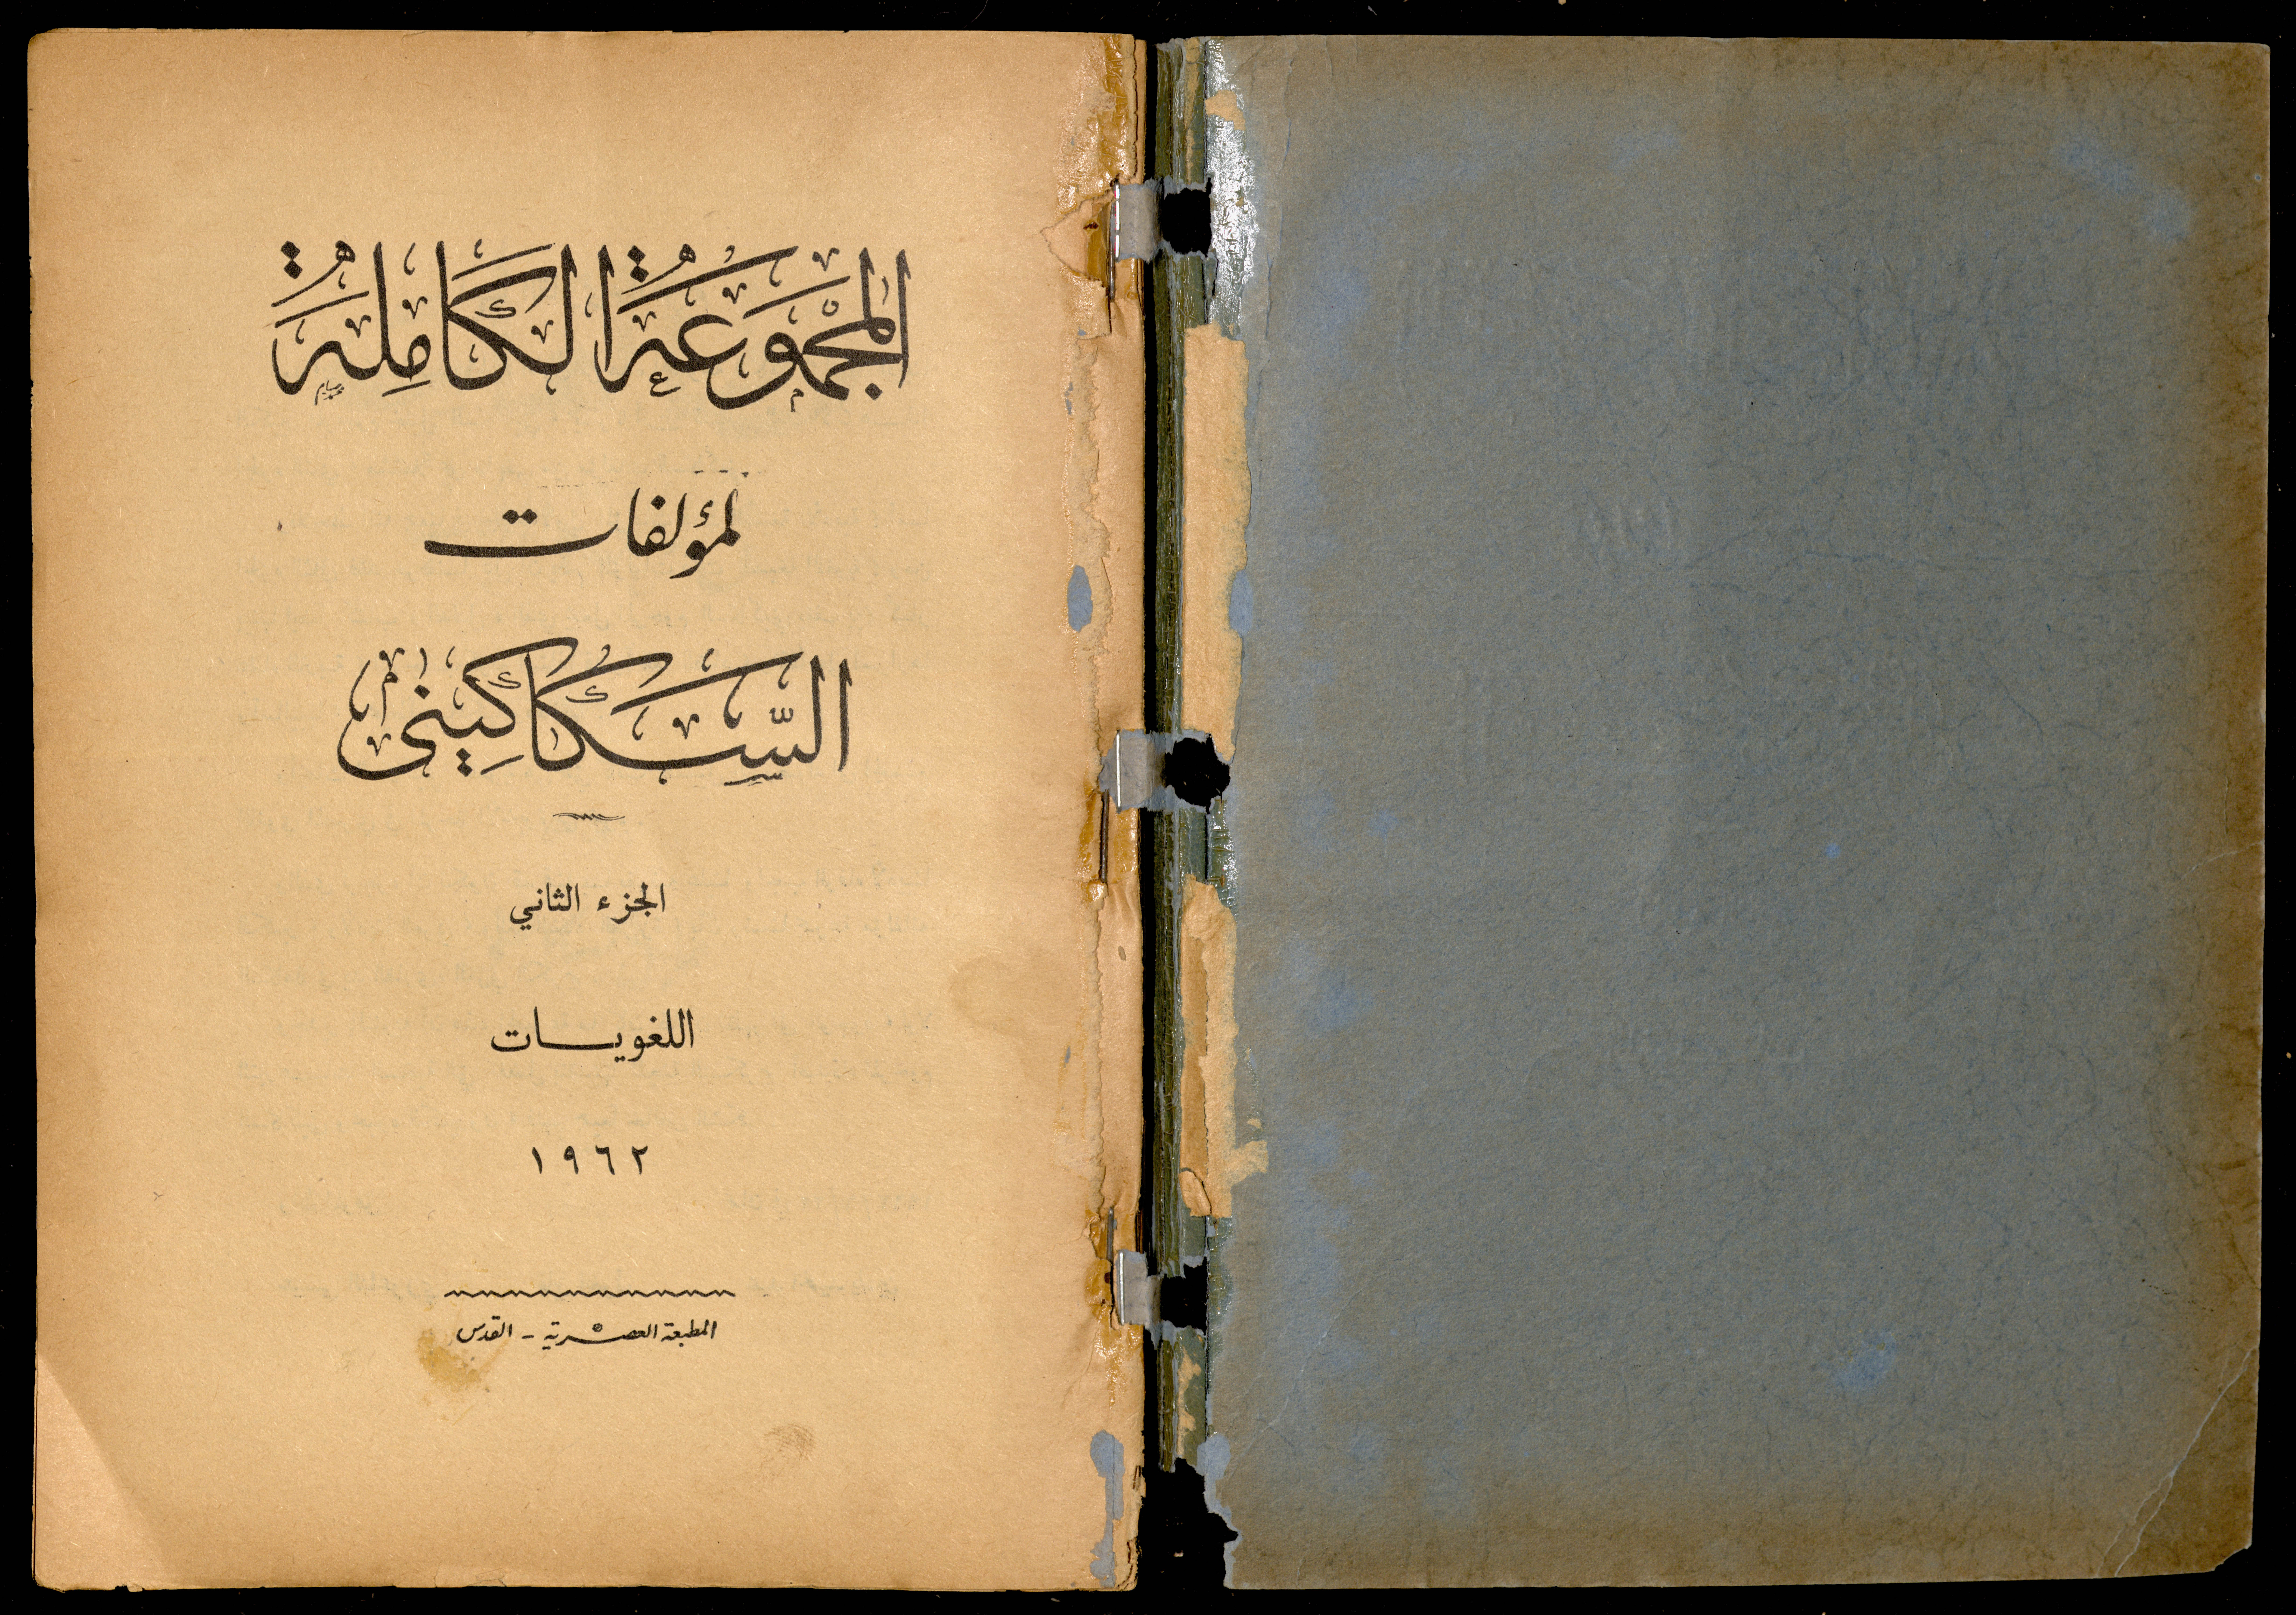 المجموعة الكاملة
لمؤلفات
السكاكيني
الجزء الثاني
اللغويسات
١٩٦٢
المطبعة العصرية - القدس